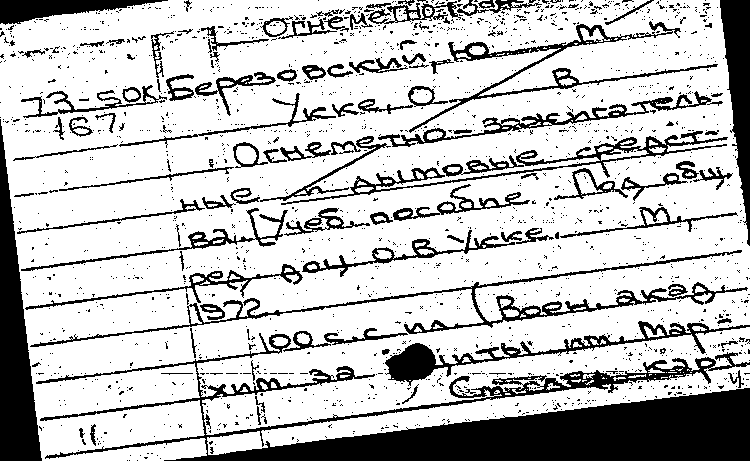 Огнеметно-зажи
Березовский, Ю. М. п
73-50К
167.
Укке, О В
Огнеметно-зажигатель-
ные п дымовые средст-
ва. [Учеб. пособпе Под общ.
ред. доц О. В Укке. М.,
1972.
100 с. с ил. (Воен. акад.
хим. защиты им. Мар-
См. след. карт
11